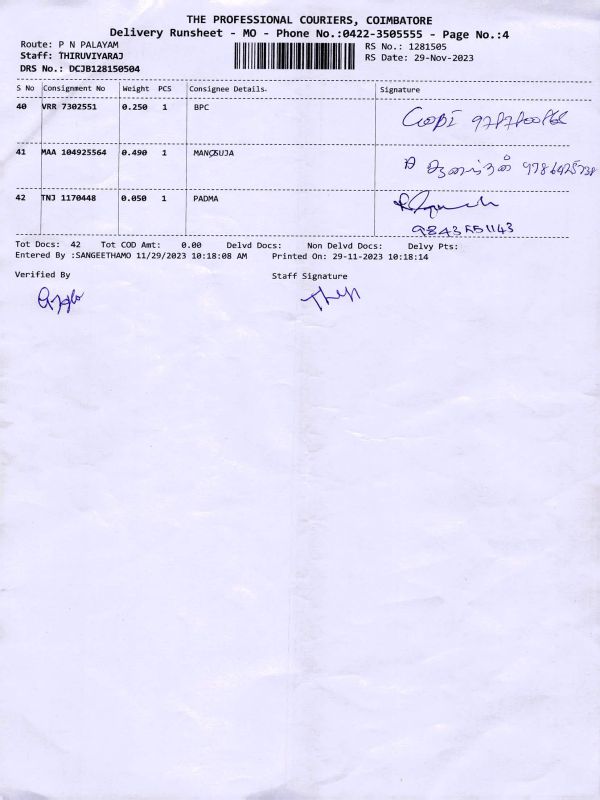 THE PROFESSIONAL COURIERS, COIMBATORE
Delivery Runsheet - MO - Phone No.:0422-3505555 - Page No.:4
Route: P N PALAYAM
RS No.: 1281505
Staff: THIRUVIYARAJ
RS Date: 29-Nov-2023
DRS No.: DCJB128150504
S No Consignment No Weight PCS Consignee Details. Signature
40 VRR 7302551 0.250 1 BPC
41 MAA 104925564 0.490 1
42 TNJ 1170448 0.050 1 PADMA
Tot Docs: 42 Tot COD Amt: 0.00 Delvd Docs: Non Delvd Docs: Delvy Pts:
Entered By :SANGEETHAMO 11/29/2023 10:18:08 AM Printed On: 29-11-2023 10:18:14
Verified By Staff Signature